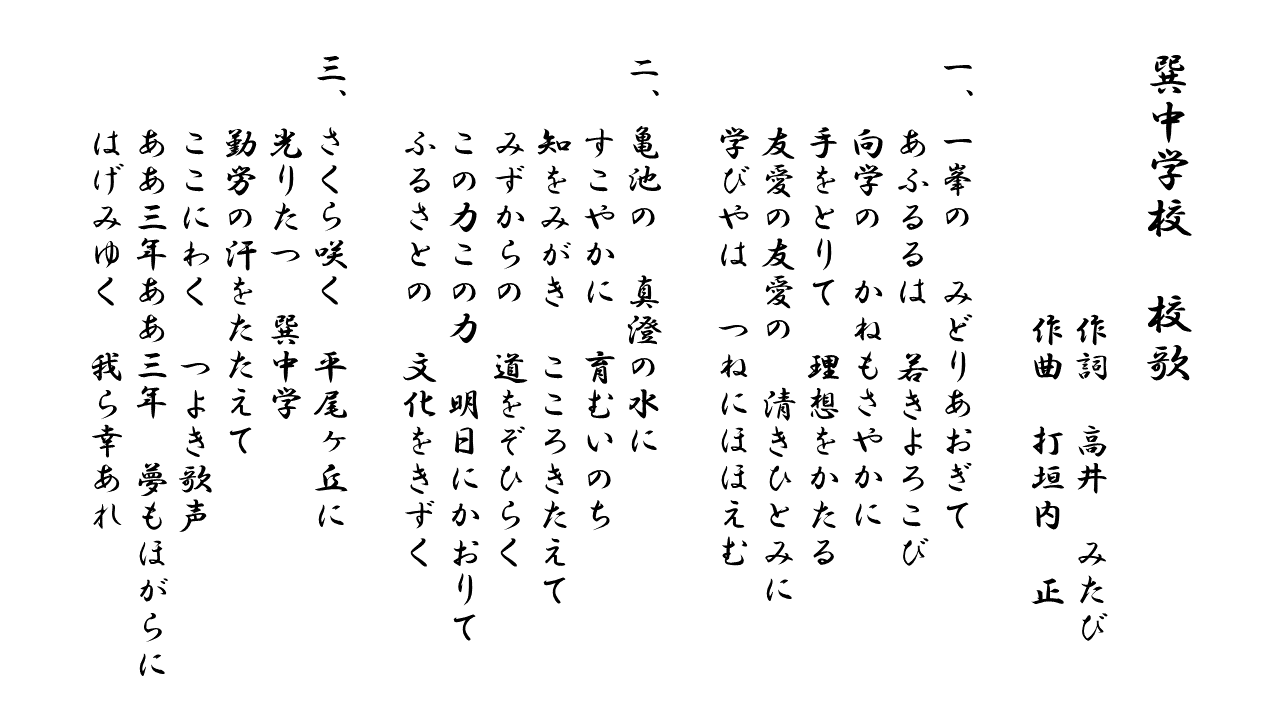 巽中学校　校歌
作詞　高井　みたび
作曲　打垣内　正
一、一峯の　みどりあおぎて
あふるるは　若きよろこび
向学の　かねもさやかに
手をとりて　理想をかたる
友愛の友愛の　清きひとみに
学びやは　つねにほほえむ
二、亀池の　真澄の水に
すこやかに　育むいのち
知をみがき　こころきたえて
みずからの　道をぞひらく
この力この力　明日にかおりて
ふるさとの　文化をきずく
三、さくら咲く　平尾ヶ丘に
光りたつ　巽中学
勤労の汗をたたえて
ここにわく　つよき歌声
ああ三年ああ三年　夢もほがらに
はげみゆく　我ら幸あれ